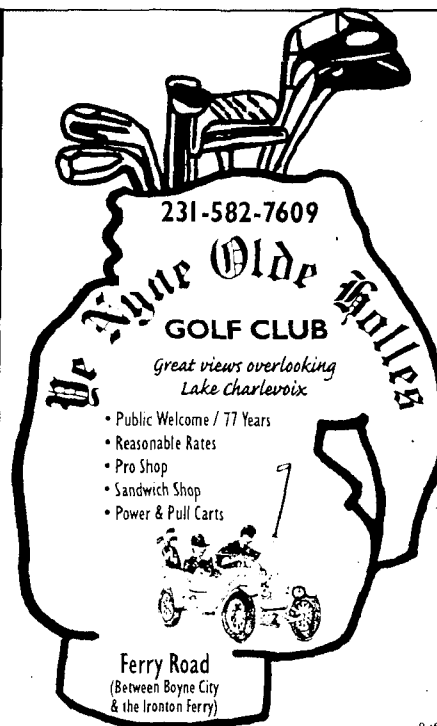 231-582-7609
Ye Nyne Olde Holles
GOLF CLUB
Great views overlooking
Lake Charlevoix
• Public Welcome / 77 Years
• Reasonable Rates
• Pro Shop
• Sandwich Shop
• Power & Pull Carts
Ferry Road
(Between Boyne City
& the Ironton Ferry)